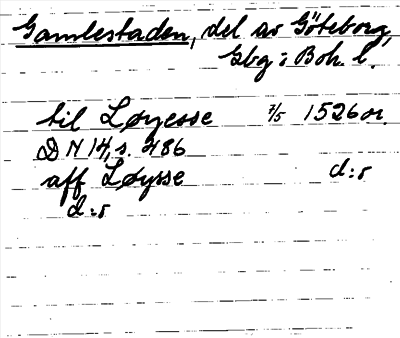 Gamlestaden, del av Göteborg,
Gbg i Boh. l.
til Løyesse 7/5 1526 or.
DN 14, s. 486
aff Løysse d:o
d:o